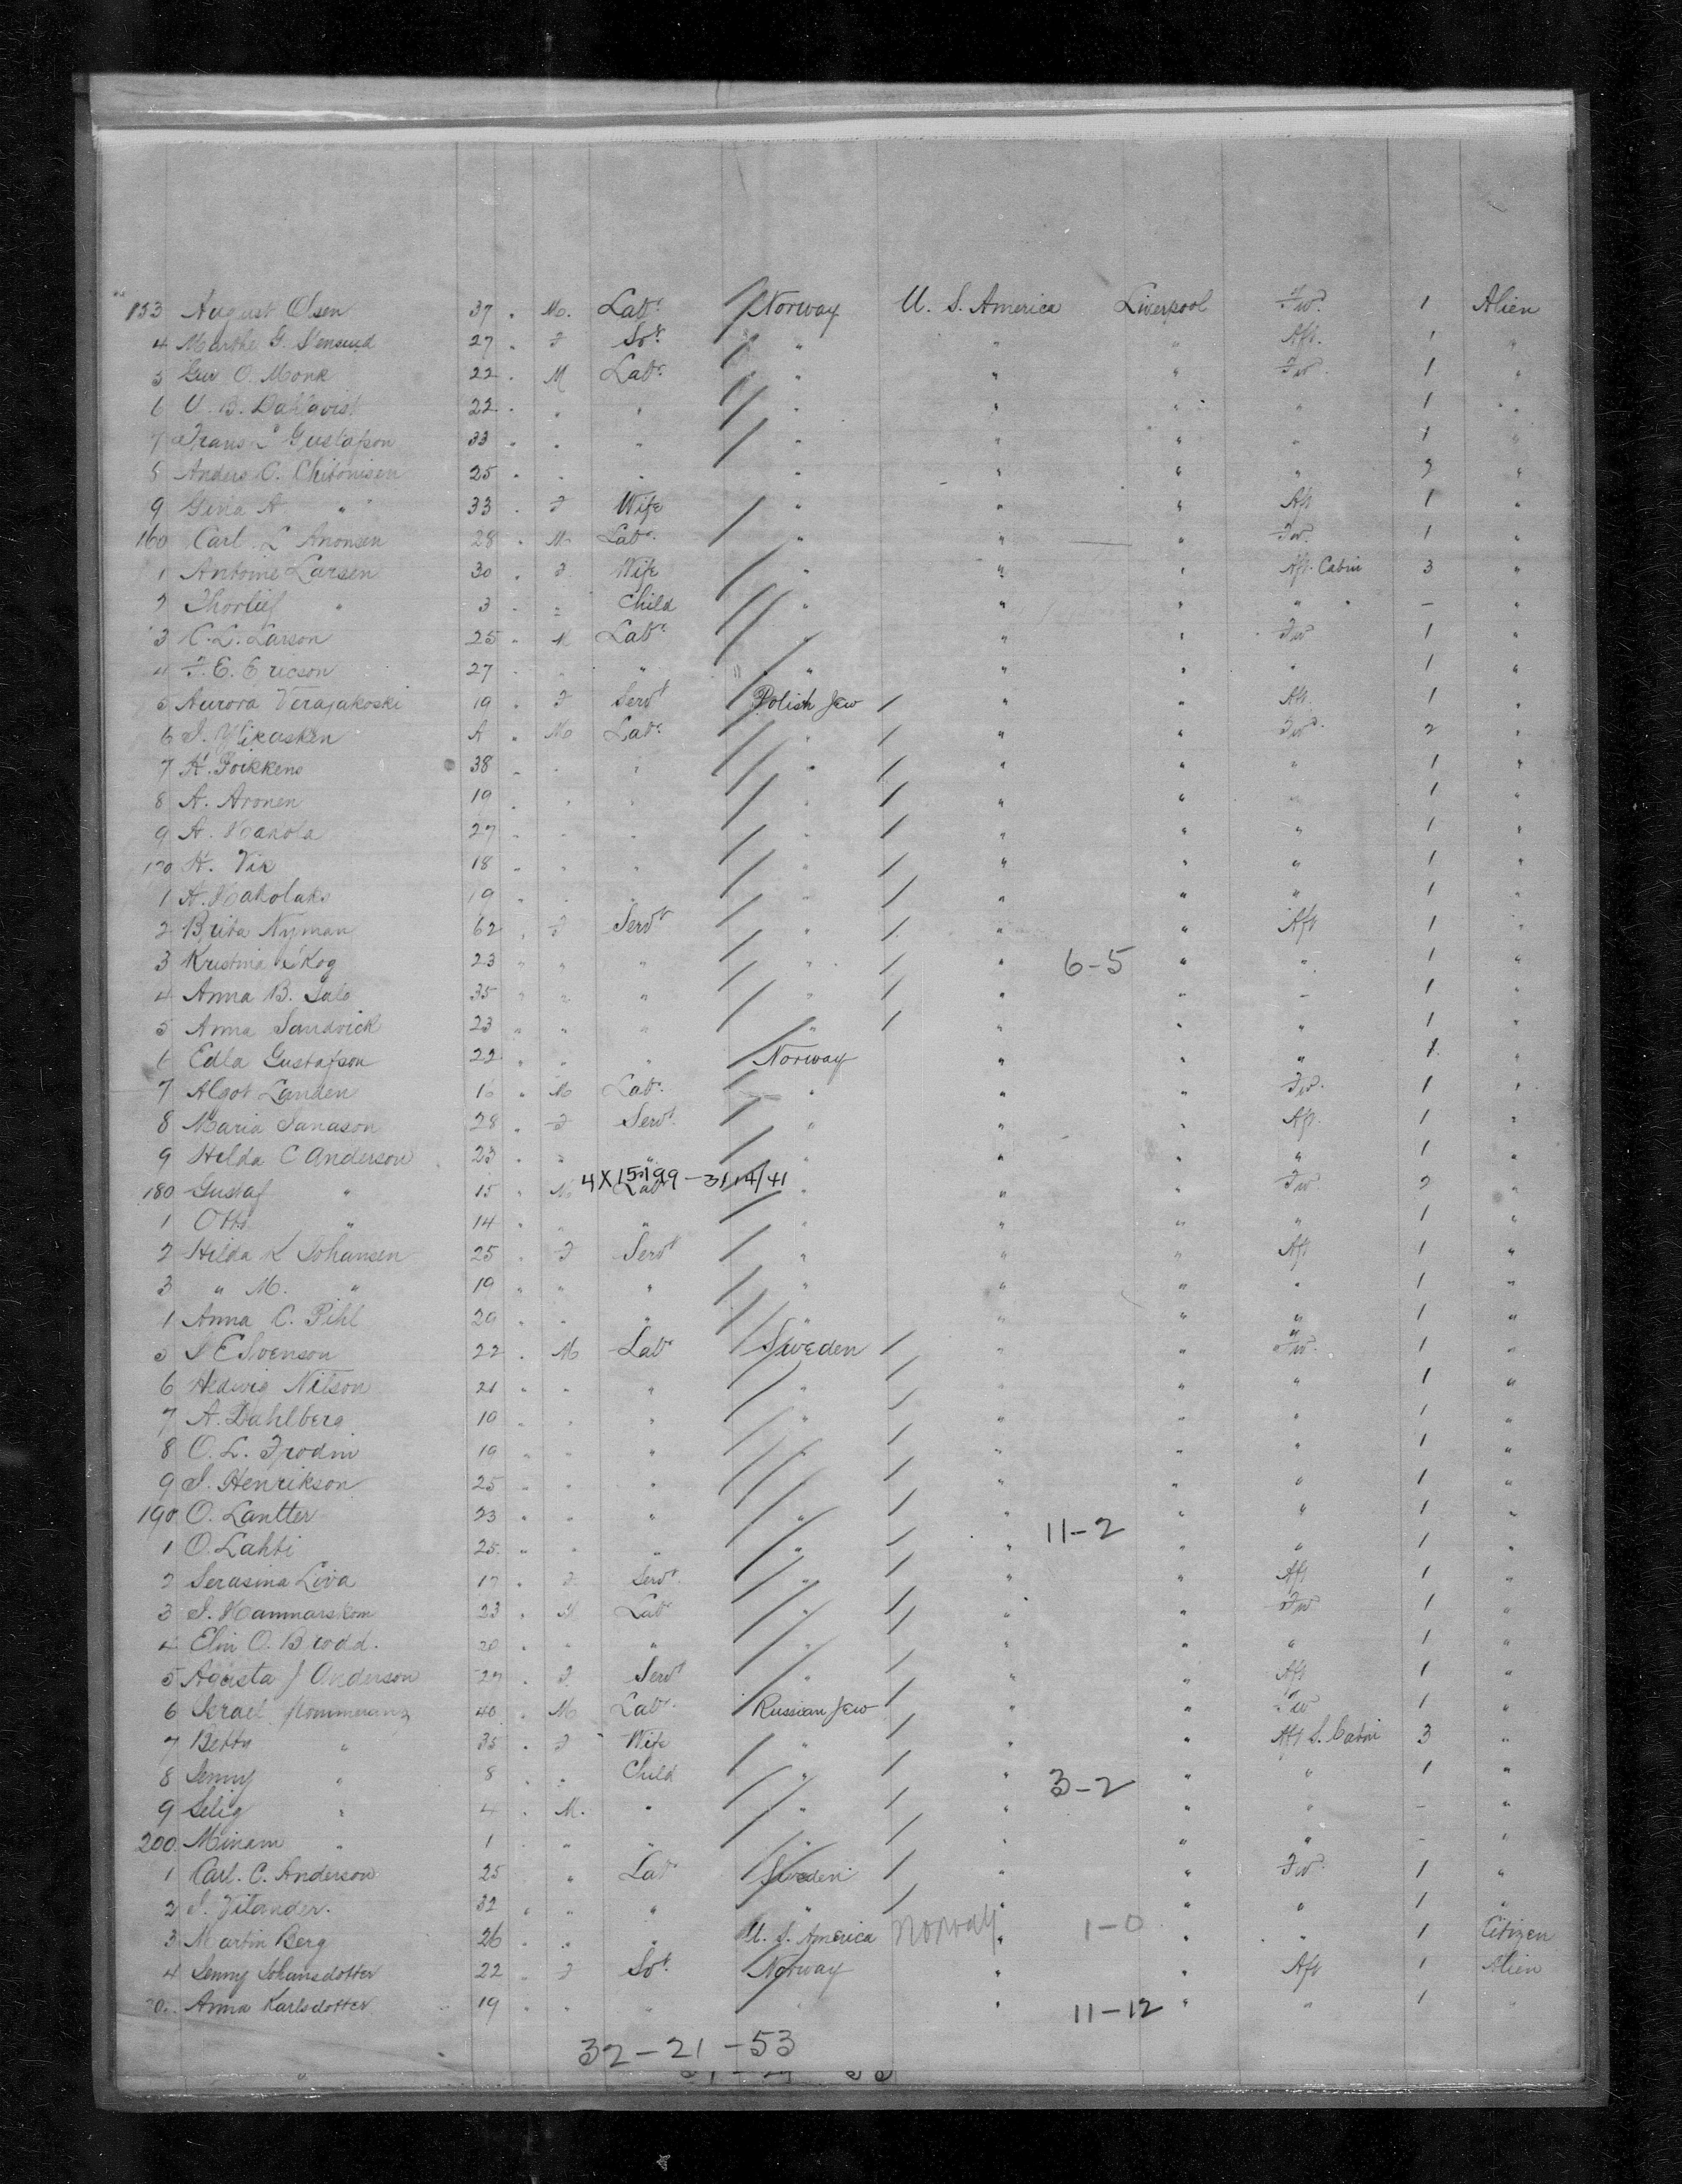 153 August Olsen 37 " M. Labr Norway U. S. America Liverpool Fw. 1 Alien
4 Marthe G. 27 " F Svt " " " Aft. 1 "
5 Gus O. Monk 22 " M Labr " " " Fw. 1 "
6 U. B. Dahlqvist 22 " " " " " " " 1 "
7 Frans L Gustafson 33 " " " " " " " 1 "
8 Anders C. 25 " " " " " " " 2 "
9 Gina A " 33 " F Wife " " " Aft 1 "
160 Carl L Anonsen 28 " M Labr " " " Fw. 1 "
1 Antoine Larsen 30 " F Wife " " " Aft. Cabin 3 "
2 Thorlief " 3 " " Child " " " " — "
3 C. L. Larson 25 " M Labr " " " Fw 1 "
4 F. E. Ericson 27 " " " " " " " 1 "
5 Aurora Verajakoski 19 " F Servt Polish Jew " " Aft. 1 "
6 S. Ylikasken A " M Labr " " " Fwd. 2 "
7 H. Poikkens 38 " " " " " " " 1 "
8 A. Aronen 19 " " " " " " " 1 "
9 A. Hakola 27 " " " " " " " 1 "
170 H. Vik 18 " " " " " " " 1 "
1 A. Hakolaks 19 " " " " " " " 1 "
2 Brita Nyman 62 " F Servt " " " Aft 1 "
3 Kristina Skog 23 " " " " " 6-5 " " 1 "
4 Anna B. Salo 35 " " " " " " " 1 "
5 Anna Sandvick 23 " " " " " " " 1 "
6 Edla Gustafson 22 " " " Norway " " " 1 "
7 Algot Landen 16 " M Labr. " " " Fw. 1 "
8 Maria Sanason 28 " F Servt. " " " Aft. 1 "
9 Hilda C Anderson 23 " " " " " " " 1 "
4X15199-3/14/41
180 Gustaf " 15 " M Labr " " " Fw. 2 "
1 Otto " 14 " " " " " " " 1 "
2 Hilda K Johansen 25 " F Servt " " " Aft 1 "
3 " M. " 19 " " " " " " " 1 "
1 Anna C. Pihl 29 " " " " " " " 1 "
5 S E Svenson 22 " M Labr Sweden " " Fw. 1 "
6 Hedwig Nilson 21 " " " " " " " 1 "
7 A. Dahlberg 19 " " " " " " " 1 "
8 O. L. Frodin 19 " " " " " " " 1 "
9 S. Henrikson 25 " " " " " " " 1 "
190 O. Lantter 23 " " " " " " " 1 "
11-2
1 O. Lahti 25 " " " " " " " 1 "
2 Serasina Liva 17 " F Servt. " " " Aft 1 "
3 S. Hammarskom 23 " M Labr " " " Fw 1 "
4 Elin O. Brodd. 20 " " " " " " " 1 "
5 Agusta J Anderson 27 " F. Servt " " " Aft 1 "
6 Israel Pommeranz 40 " M Labr. Russian Jew " " Fw 1 "
7 Betty " 35 " F Wife " " " Aft S. Cabin 3 "
8 Jenny " 8 " " Child " " 3-2 " " 1 "
9 Selig " 4 " M. " " " " " — "
200 Miriam " 1 " " " " " " " — "
1 Carl. C. Anderson 25 " " Labr Sweden " " Fw. 1 "
2 S. Vitander. 32 " " " " " " " 1 "
3 Martin Berg 26 " " " U. S. America Norway " 1-0 " " 1 Citizen
4 Jenny Johansdotter 22 " F Svt. Norway " " Aft 1 Alien
20 Anna Karlsdotter 19 " " " " " 11-12 " " 1 "
32-21-53